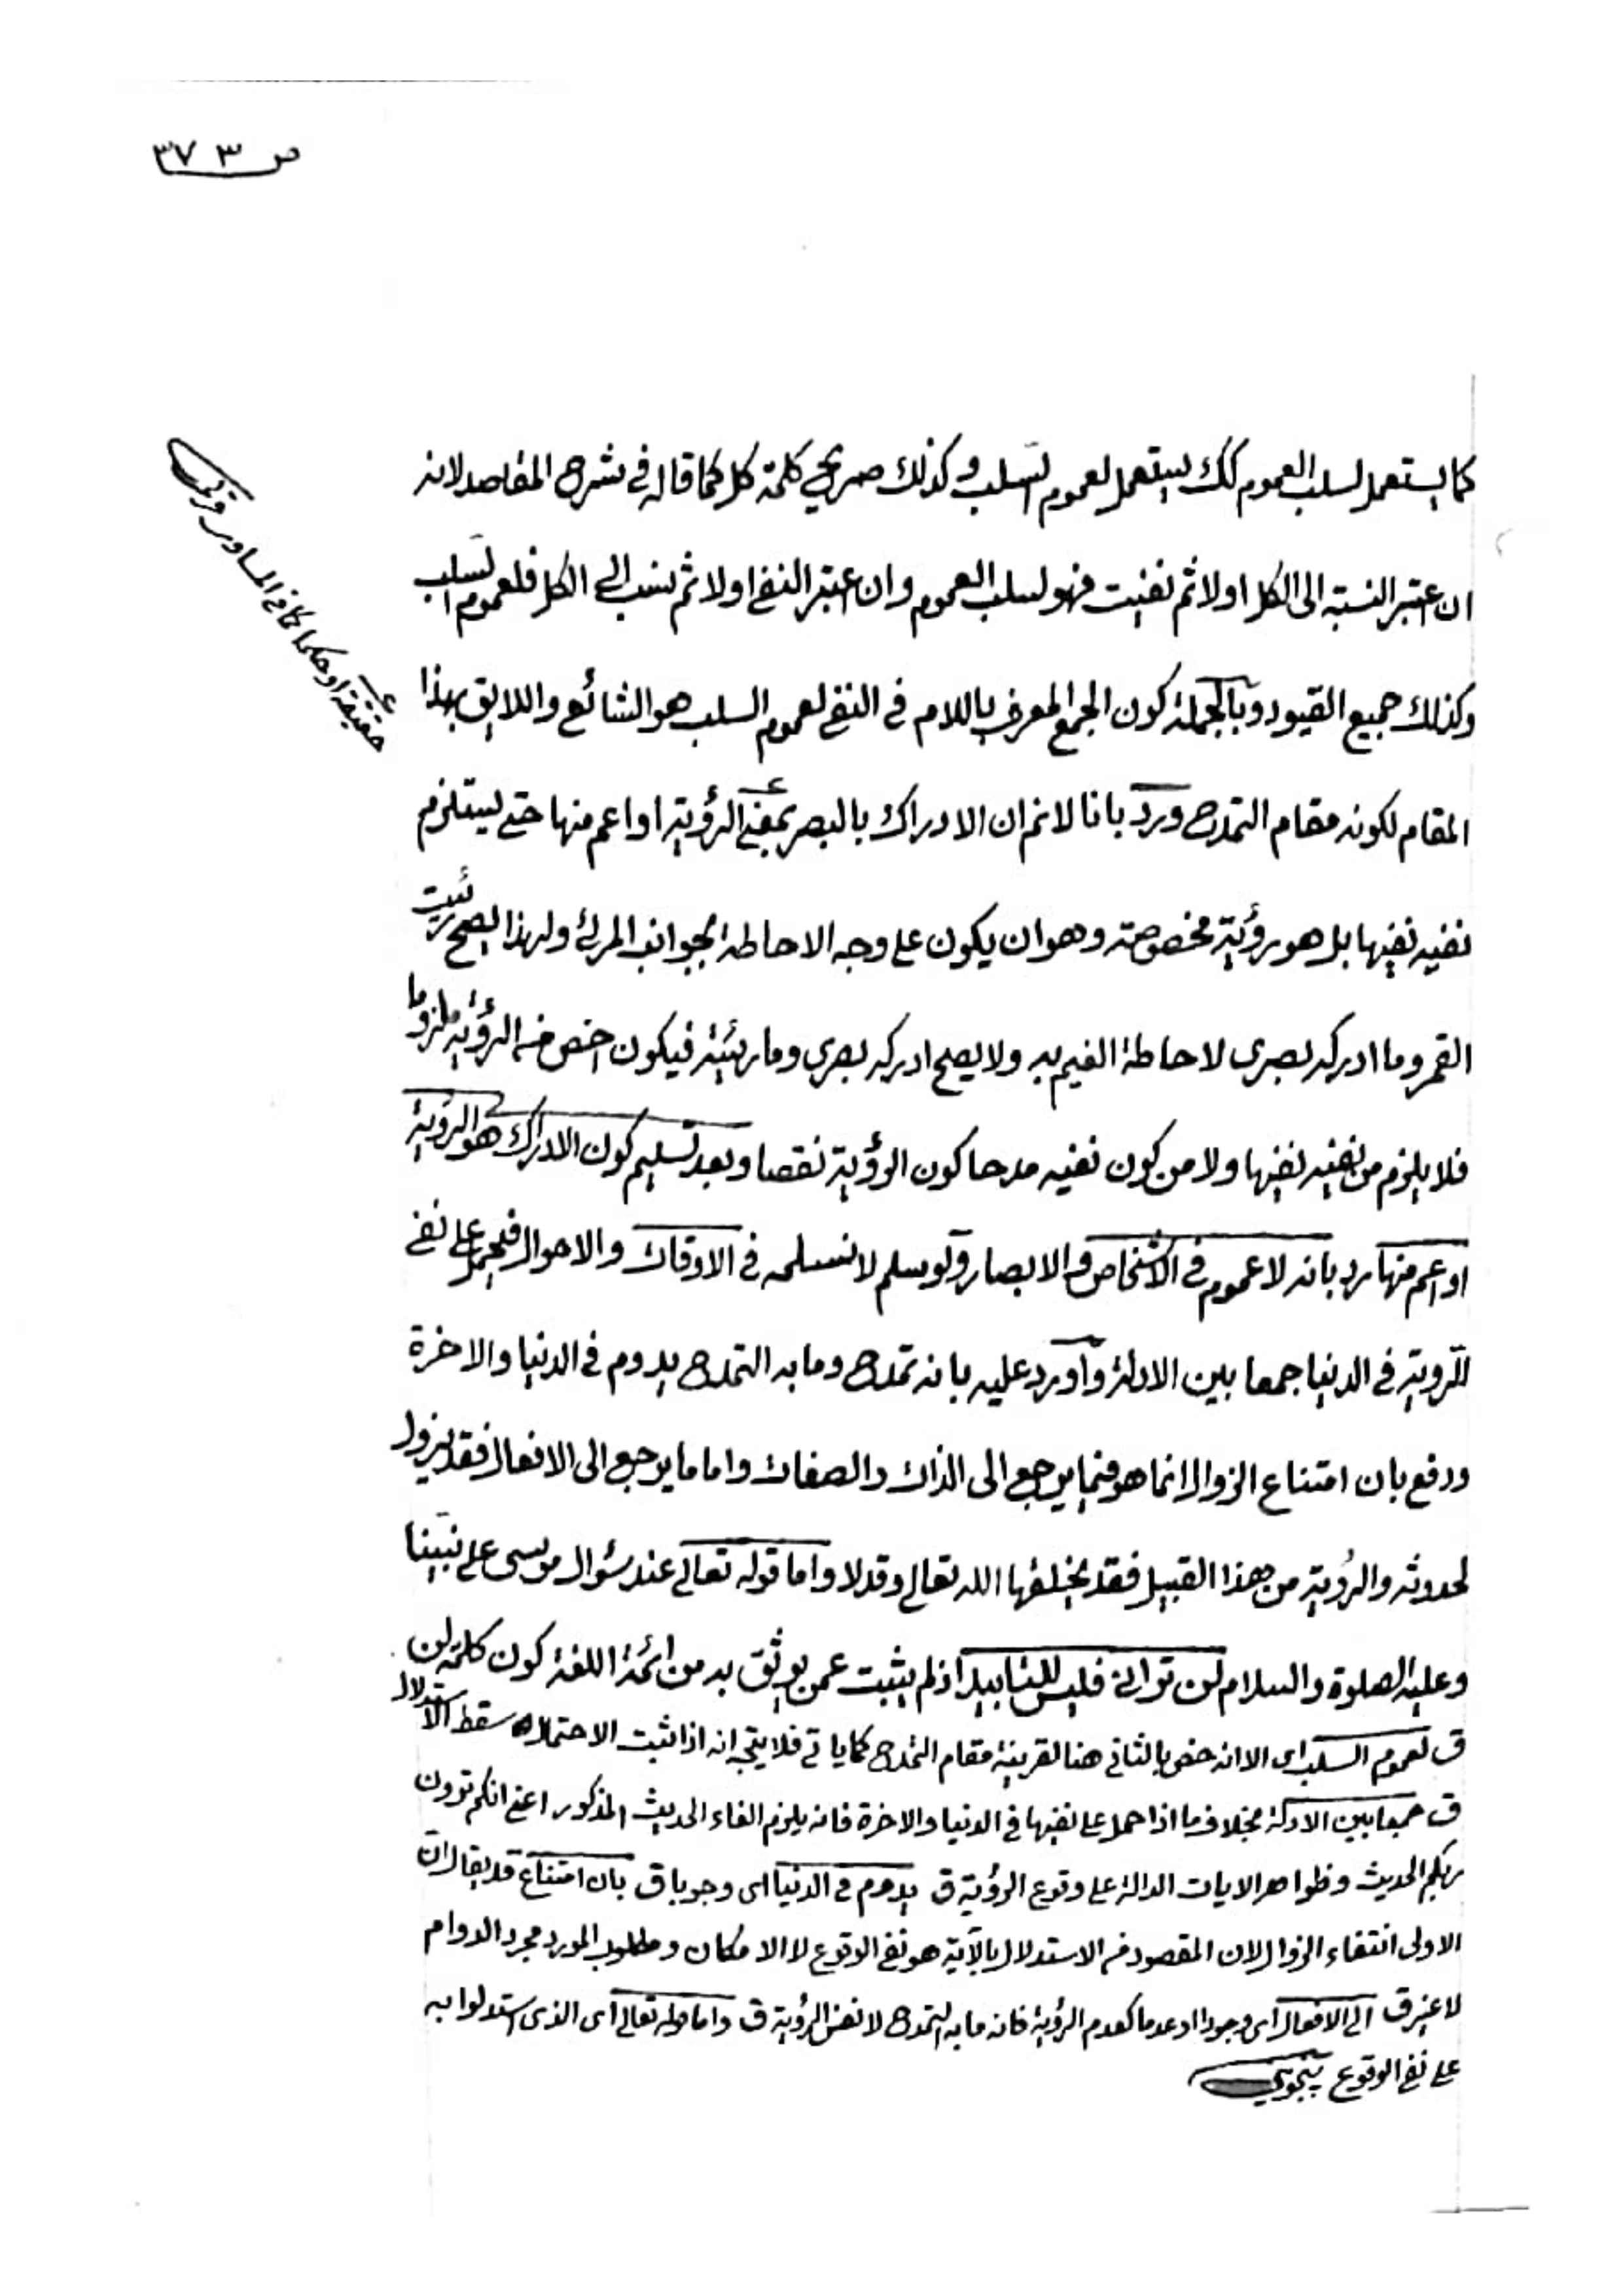 ص ٣٧٣
كما يستعمل لسلب العموم كك يستعمل لعموم السلب وكذلك صريح كلمة كل كما قاله في شرح المقاصد لانه
ان اعتبر النسبة الى الكل اولا ثم نفيت فهو لسلب العموم وان اعتبر النفي اولا ثم نسب الى الكل فلعموم السلب
وكذلك جميع القيود وبالجملة كون الجمع المعرف باللام في النفي لعموم السلب هو الشائع واللايق بهذا
المقام لكونه مقام التمدح ورد بانا لانم ان الادراك بالبصر بمعنى الرؤية او اعم منها حتى يستلزم
نفيه نفيها بل هو رؤية مخصوصة وهو ان يكون على وجه الاحاطة بجوانب المرئ ولهذا يصح رئيت
القمر وما ادركه بصرى لاحاطة الغيم به ولا يصح ادركه بصرى وما رئيته فيكون اخص من الرؤية ملزوما
فلا يلزم من نفيه نفيها ولا من كون نفيه مدحا كون الرؤية نقصا وبعد تسليم كون الادراك هو الرؤية
او اعم منها رد بانه لا عموم في الاشخاص والابصار ولو سلم لا نسلمه في الاوقات والاحوال فيحمل على نفي
الرؤية في الدنيا جمعا بين الادلة واورد عليه بانه تمدح وما به التمدح يدوم في الدنيا والاخرة
ودفع بان امتناع الزوال انما هو فيما يرجع الى الذات والصفات واما ما يرجع الى الافعال فقد يزول
لحدوثه والرؤية من هذا القبيل فقد يخلقها الله تعالى وقد لا واما قوله تعالى عند سؤال موسى على نبينا
وعليه الصلوة والسلام لن ترانى فليس للتابيد اذ لم يثبت عمن يوثق به من ائمة اللغة كون كلمة لن
ق لعموم السلب اى الا انه خص بالثانى هنا لقرينة مقام التمدح كما ياتى فلا يتجه انه اذا ثبت الاحتمال سقط الاستدلال
ق جمعا بين الادلة بخلاف ما اذا حمل على نفيها في الدنيا والاخرة فانه يلزم الغاء الحديث المذكور اعنى انكم ترون
ربكم الحديث وظواهر الايات الدالة على وقوع الرؤية ق يدوم في الدنيا اى وجوبا ق بان امتناع قد يقال ان
الاولى انتفاء الزوال لان المقصود من الاستدلال بالآية هو نفي الوقوع لا الامكان ومطلوب المورد مجرد الدوام
لا غير ق الى الافعال اى وجودا او عدما كعدم الرؤية فانه ما به التمدح لا نفس الرؤية ق واما قوله تعالى اى الذى استدلوا به
على نفي الوقوع پنجوينى
حقيقة او حكما كما في المساوى